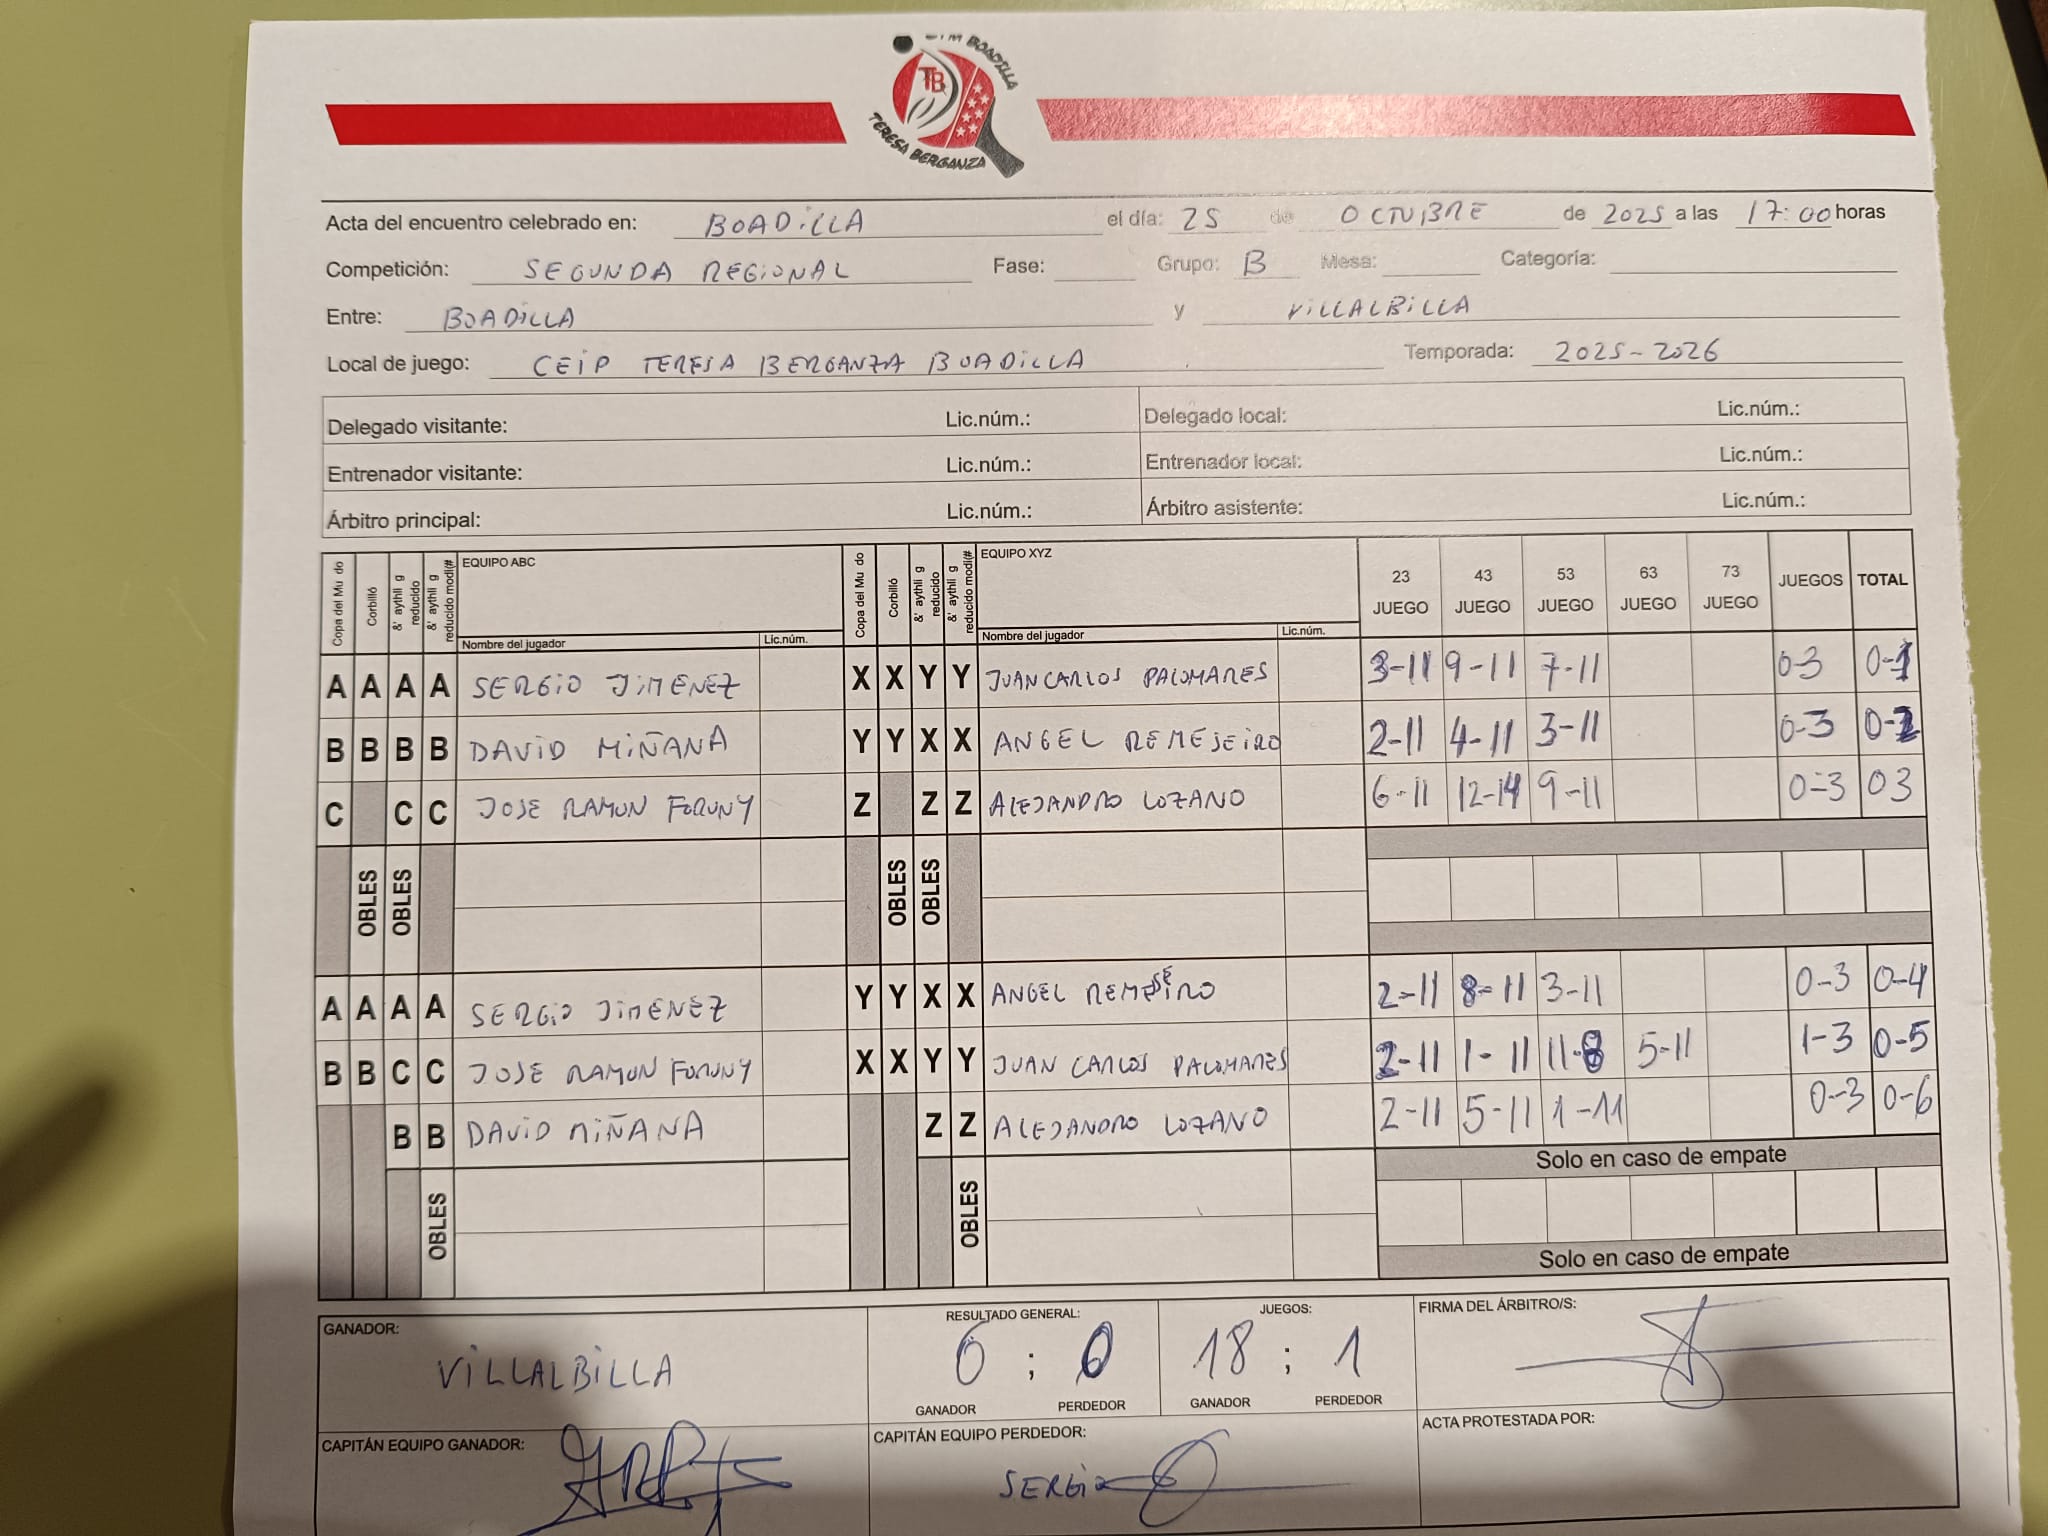 BOADILLA
TB
TERESA BERGANZA
Acta del encuentro celebrado en: BOADILLA el día: 25 de OCTUBRE de 2025 a las 17:00 horas
Competición: SEGUNDA REGIONAL Fase: Grupo: B Mesa: Categoría:
Entre: BOADILLA y VILLALBILLA
Local de juego: CEIP TERESA BERGANZA BOADILLA Temporada: 2025-2026
Delegado visitante: Lic.núm.: Delegado local: Lic.núm.:
Entrenador visitante: Lic.núm.: Entrenador local: Lic.núm.:
Árbitro principal: Lic.núm.: Árbitro asistente: Lic.núm.:
Copa del Mu do Corbilló &' aythli g reducido &' aythli g reducido modi(# EQUIPO ABC Copa del Mu do Corbilló &' aythli g reducido &' aythli g reducido modi(# EQUIPO XYZ 23 JUEGO 43 JUEGO 53 JUEGO 63 JUEGO 73 JUEGO JUEGOS TOTAL
Nombre del jugador Lic.núm. Nombre del jugador Lic.núm.
A A A A SERGIO JIMENEZ X X Y Y JUAN CARLOS PALOMARES 3-11 9-11 7-11 0-3 0-1
B B B B DAVID MIÑANA Y Y X X ANGEL REMESEIRO 2-11 4-11 3-11 0-3 0-2
C C C JOSE RAMON FORUNY Z Z Z ALEJANDRO LOZANO 6-11 12-14 9-11 0-3 0 3
OBLES OBLES OBLES OBLES
A A A A SERGIO JIMENEZ Y Y X X ANGEL REMESEIRO 2-11 8-11 3-11 0-3 0-4
B B C C JOSE RAMON FORUNY X X Y Y JUAN CARLOS PALOMARES 2-11 1-11 11-8 5-11 1-3 0-5
B B DAVID MIÑANA Z Z ALEJANDRO LOZANO 2-11 5-11 1-11 0-3 0-6
Solo en caso de empate
OBLES OBLES
Solo en caso de empate
GANADOR: VILLALBILLA RESULTADO GENERAL: 6 ; 0 JUEGOS: 18 ; 1 FIRMA DEL ÁRBITRO/S:
GANADOR PERDEDOR GANADOR PERDEDOR
CAPITÁN EQUIPO GANADOR: CAPITÁN EQUIPO PERDEDOR: SERGIO ACTA PROTESTADA POR: